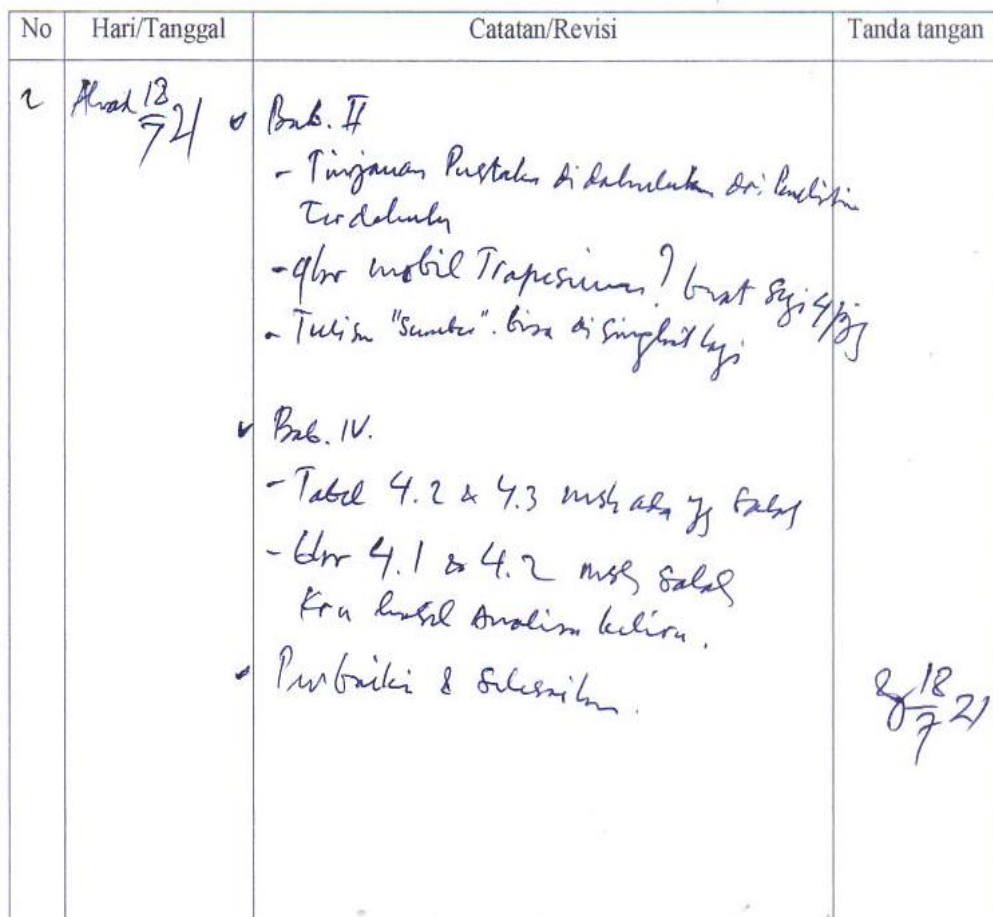 No Hari/Tanggal Catatan/Revisi Tanda tangan
2 Ahad 18/7 21
Bab. II
- Tinjauan Pustaka didahulukan dri Penelitian
Terdahulu
- gbr mobil Trapesium? buat segi 4 pjg
- Tulisan "Sumber". bisa disingkat lagi
Bab. IV.
- Tabel 4.2 & 4.3 msh ada yg salah
- Gbr 4.1 & 4.2 msh salah
Krn hasil Analisa keliru.
Perbaiki & selesaikan.
18/7 21